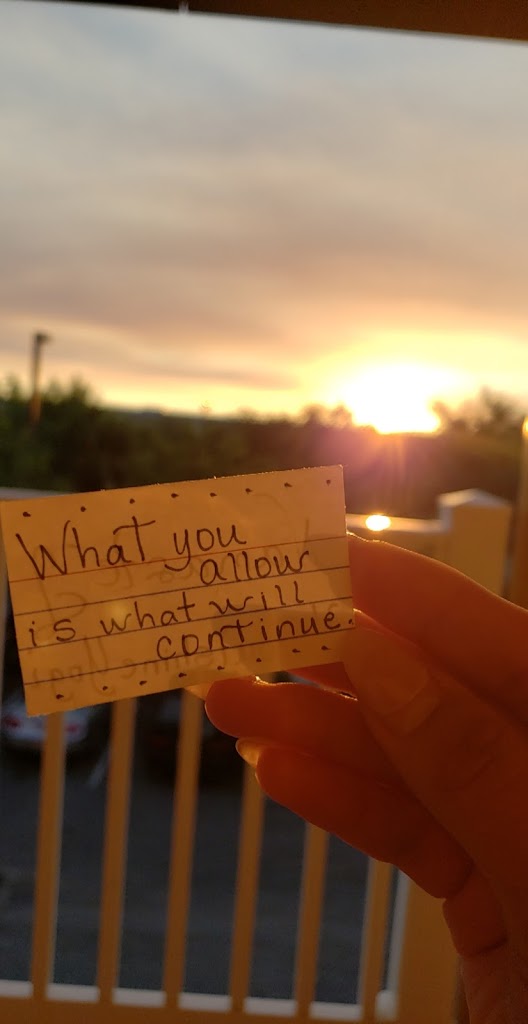 What you
allow
is what will
continue.